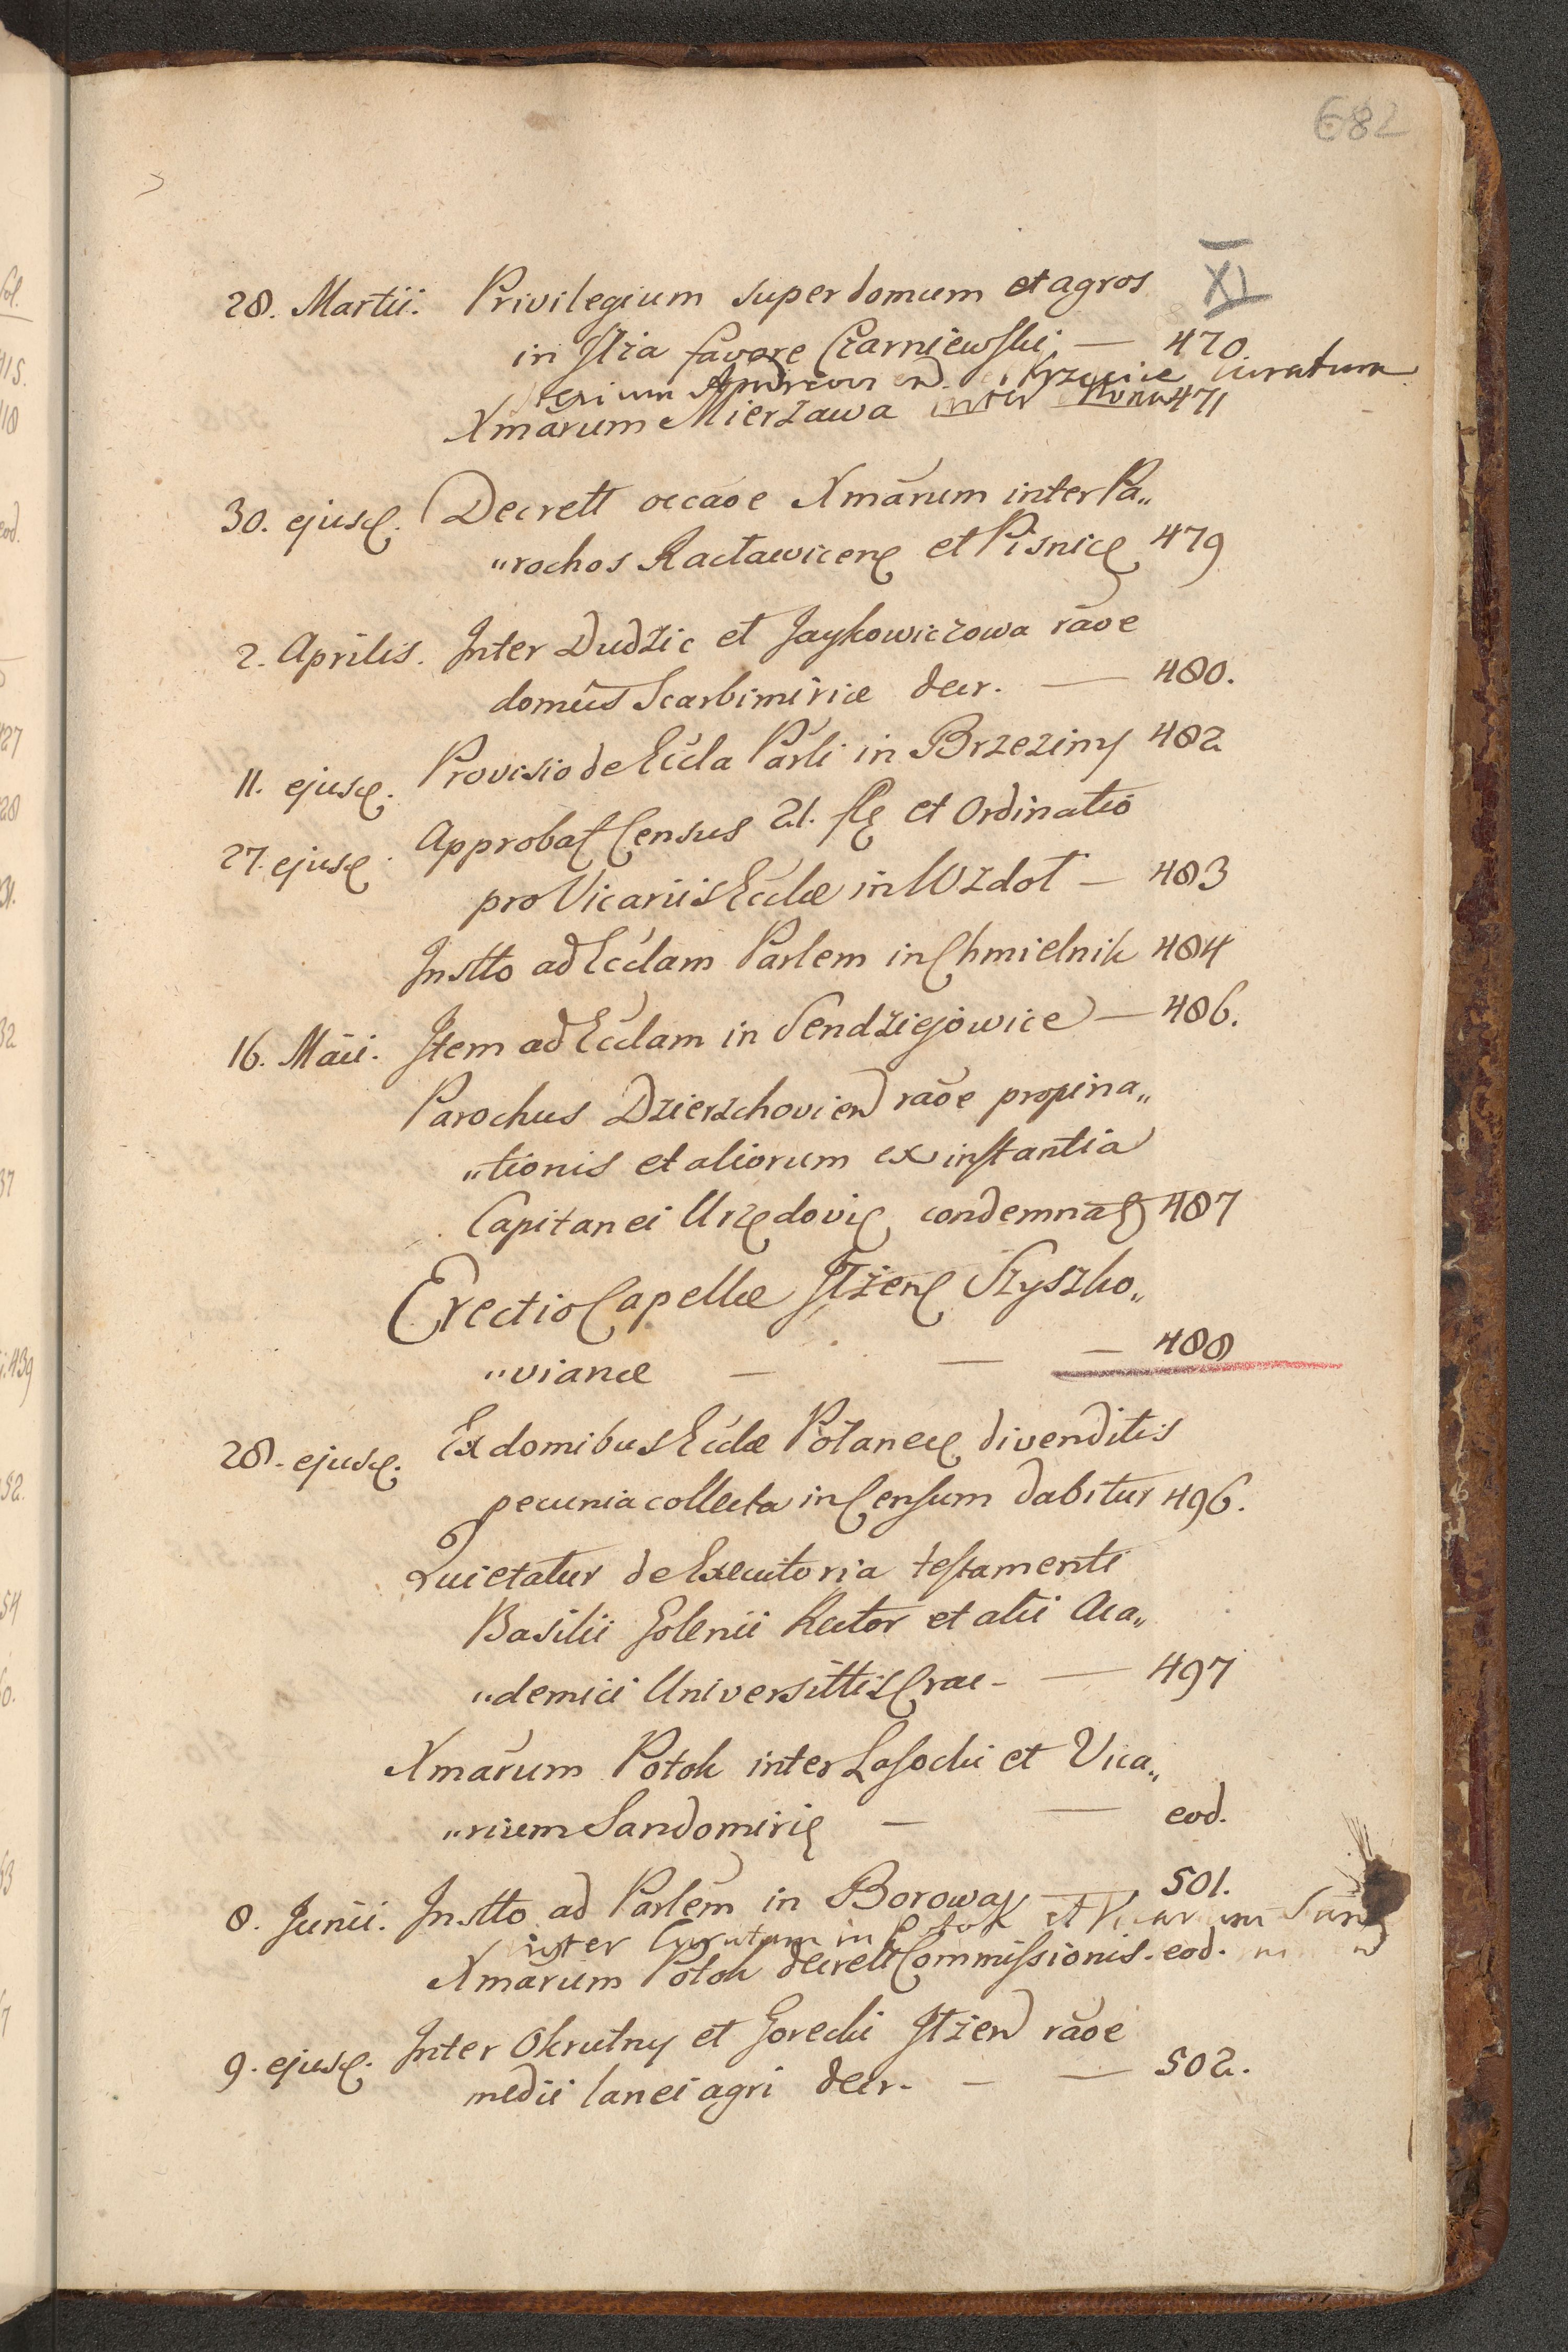 682
XI
28. Martii. Privilegium super domum et agros
in Jłża favore Czarniewski — 470.
sterium Andreovien. et Krzcęcice curatum
Xmārum Mierzawa inter Mona 471
30. ejusd. Decrett occāoe Xmārum inter Pa„
„rochos Racławicen. et Pisnic. 479
2. Aprilis. Inter Dudzic et Jaykowiczowa rāoe
domūs Scarbimiriæ decr. — 480.
11. ejusd. Provisio de Eccla Parli in Brzeziny 482
27. ejusd. Approbat. Census 21. fl. et Ordinatio
pro Vicariis Ecclæ in Wzdoł — 483
Jnstto ad Ecclam Parlem in Chmielnik 484
16. Maii. Jtem ad Ecclam in Sendziejowice — 486.
Parochus Dzierzchovien. rāoe propina„
„tionis et aliorum ex instantia
Capitanei Urzędovi. condemnat. 487
Erectio Capellæ Jłżen. Szyszko„
„vianæ — — — 488
28. ejusd. Ex domibus Ecclæ Połanec. divenditis
pecunia collecta in Censum dabitur 496.
Quietatur de Executoria testamenti
Basilii Golenii Rector et alii Aca„
„demici Universittis Crac. — 497
Xmārum Potok inter Lasocki et Vica„
„rium Sandomiri. — — eod.
8. Junii. Jnstto ad Parlem in Borowa — 501.
inter Curatum in Potok et Vicarium Sand
Xmārum Potok decrett Commissionis. eod.
9. ejusd. Inter Okrutny et Gorecki Jłżen. rāoe
medii lanei agri decr. — — 502.